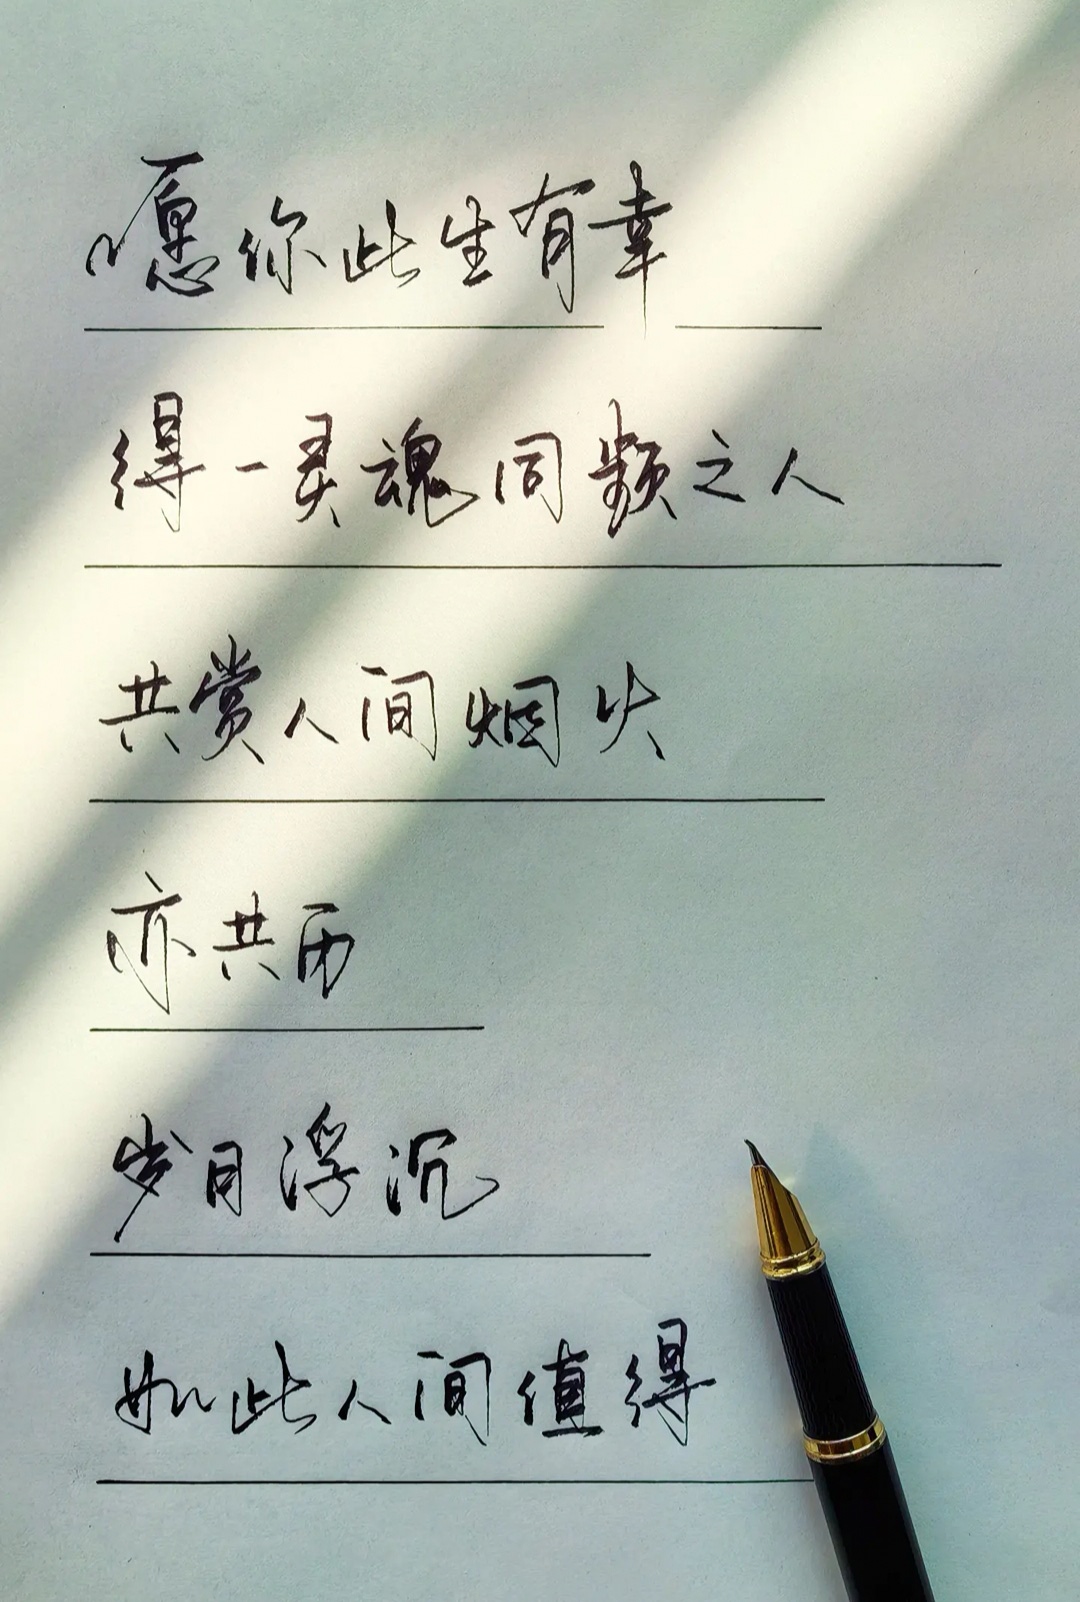 愿你此生有幸
得一灵魂同频之人
共赏人间烟火
亦共历
岁月浮沉
如此人间值得